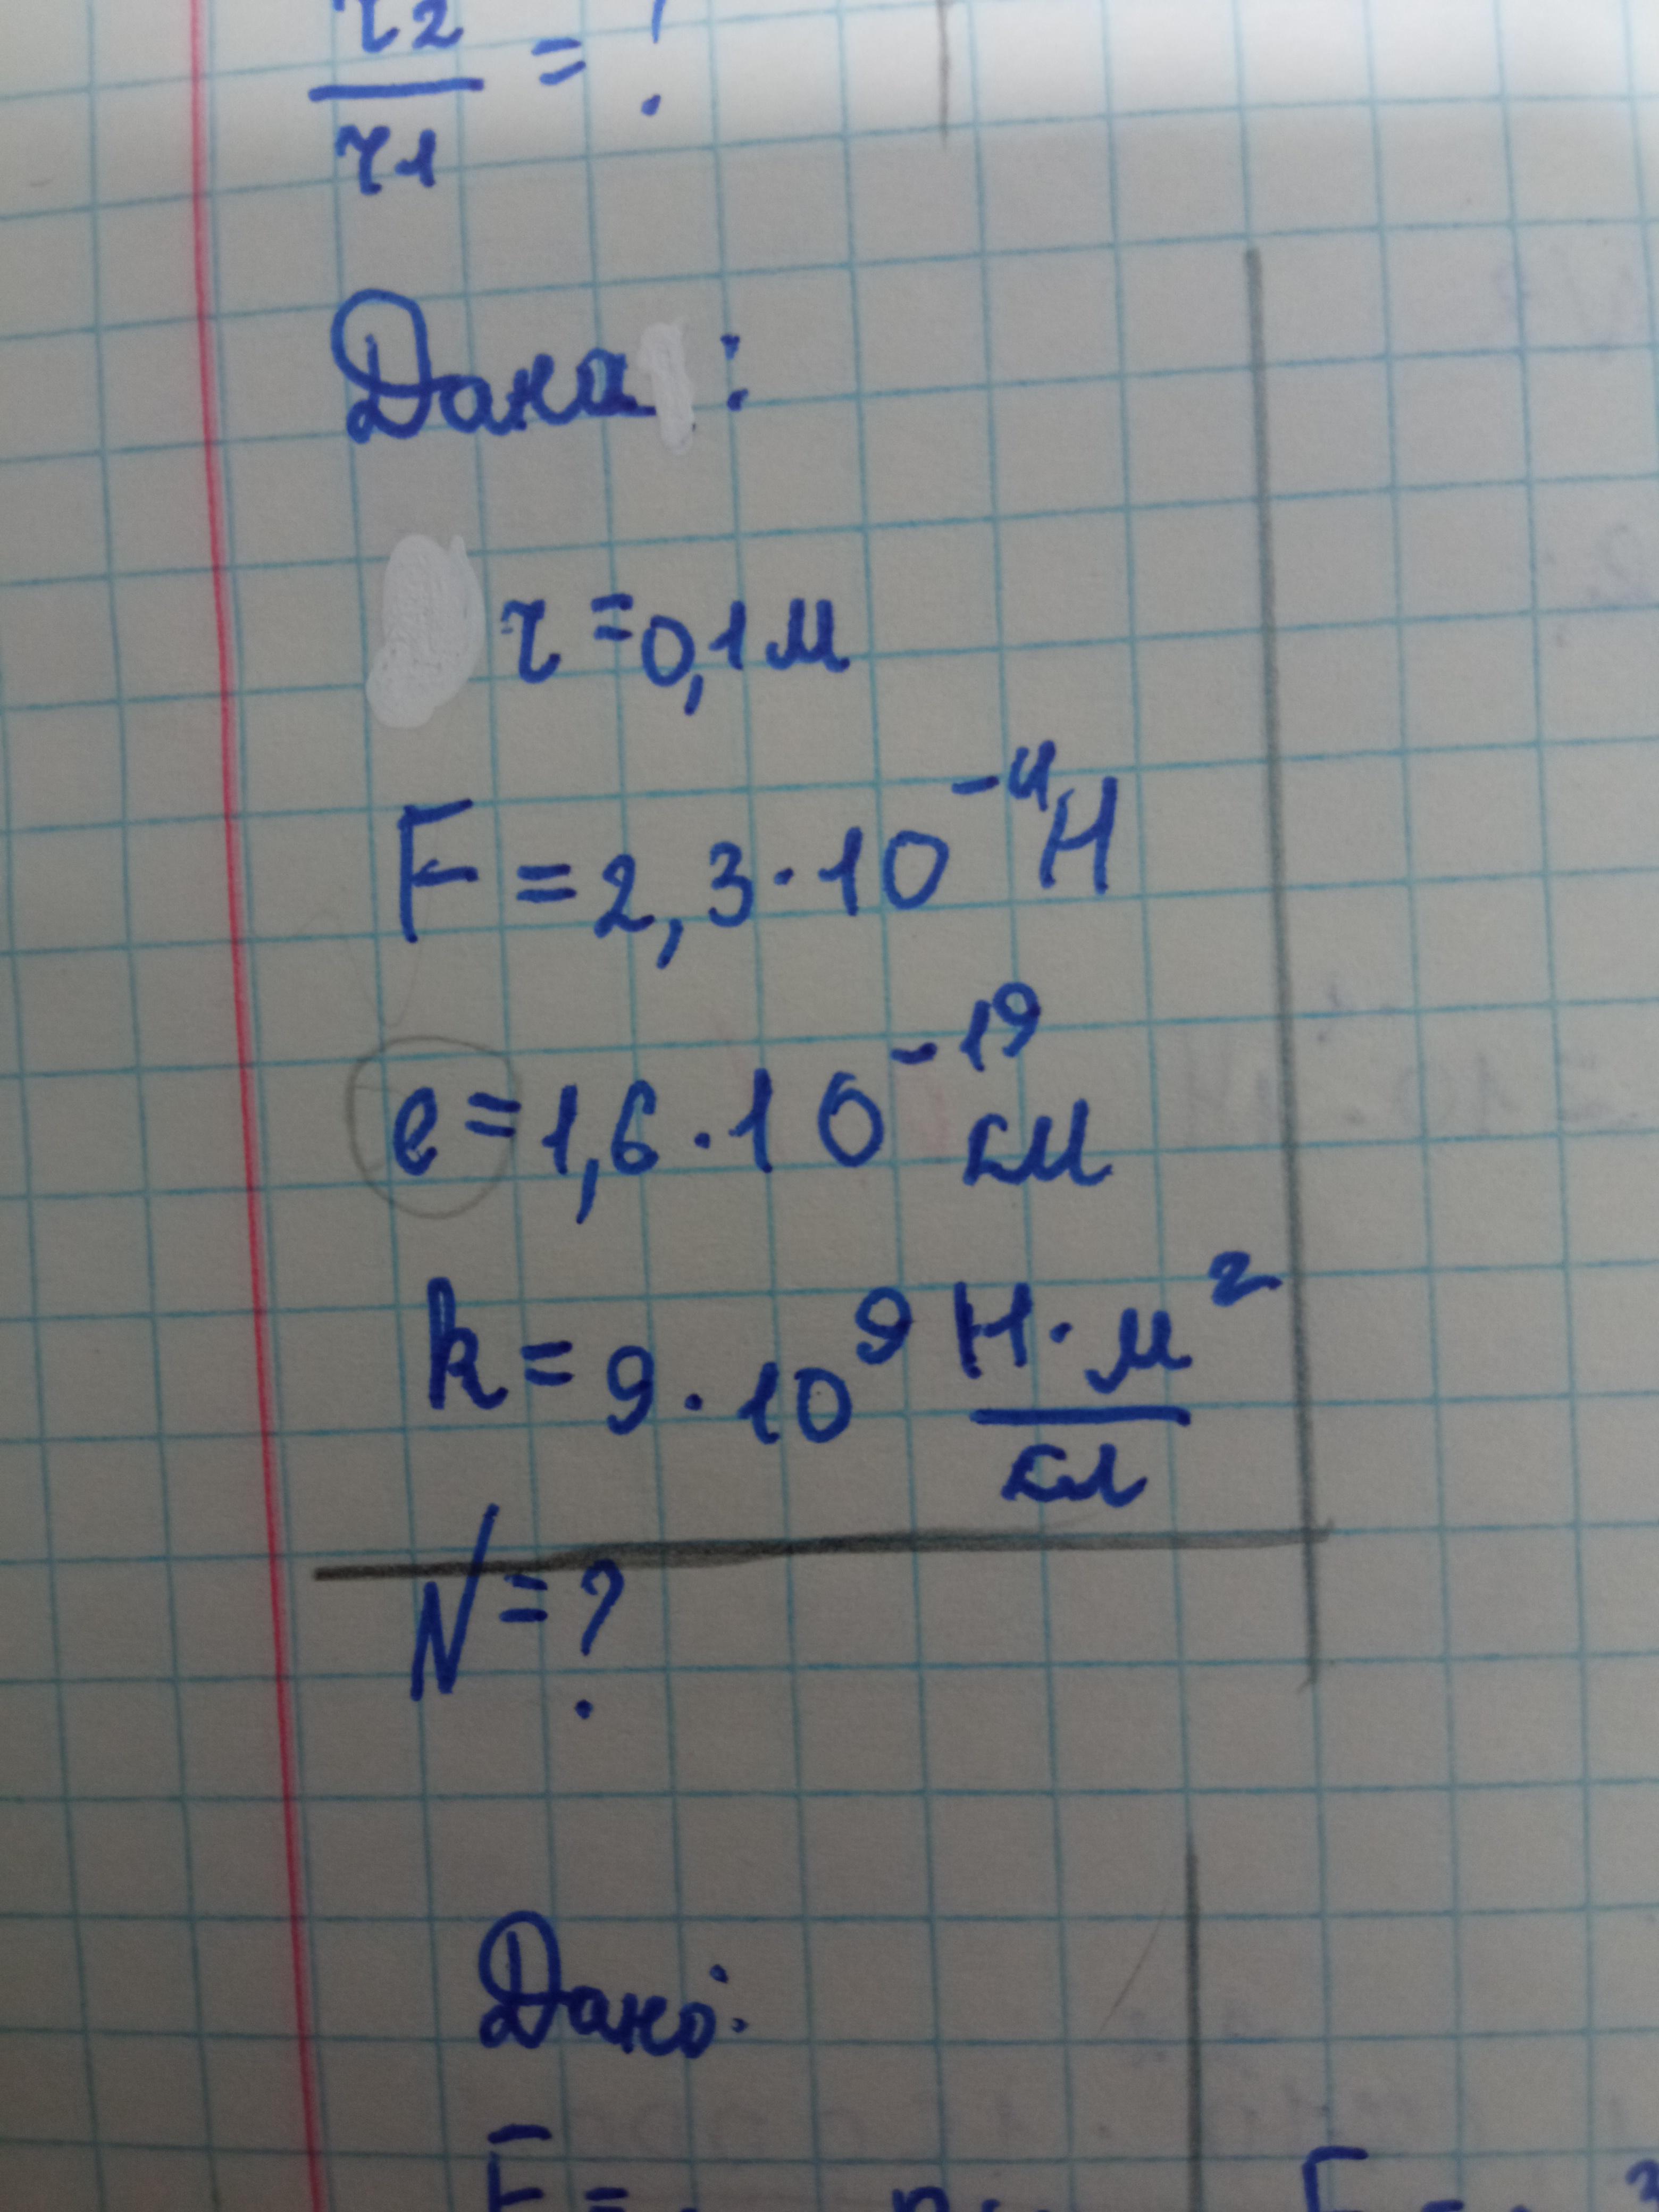 r2/r1 = ?
Дана :
r = 0,1 м
F = 2,3 · 10⁻⁴ Н
e = 1,6 · 10⁻¹⁹ см
k = 9 · 10⁹ Н · м²/кл
N = ?
Дано: